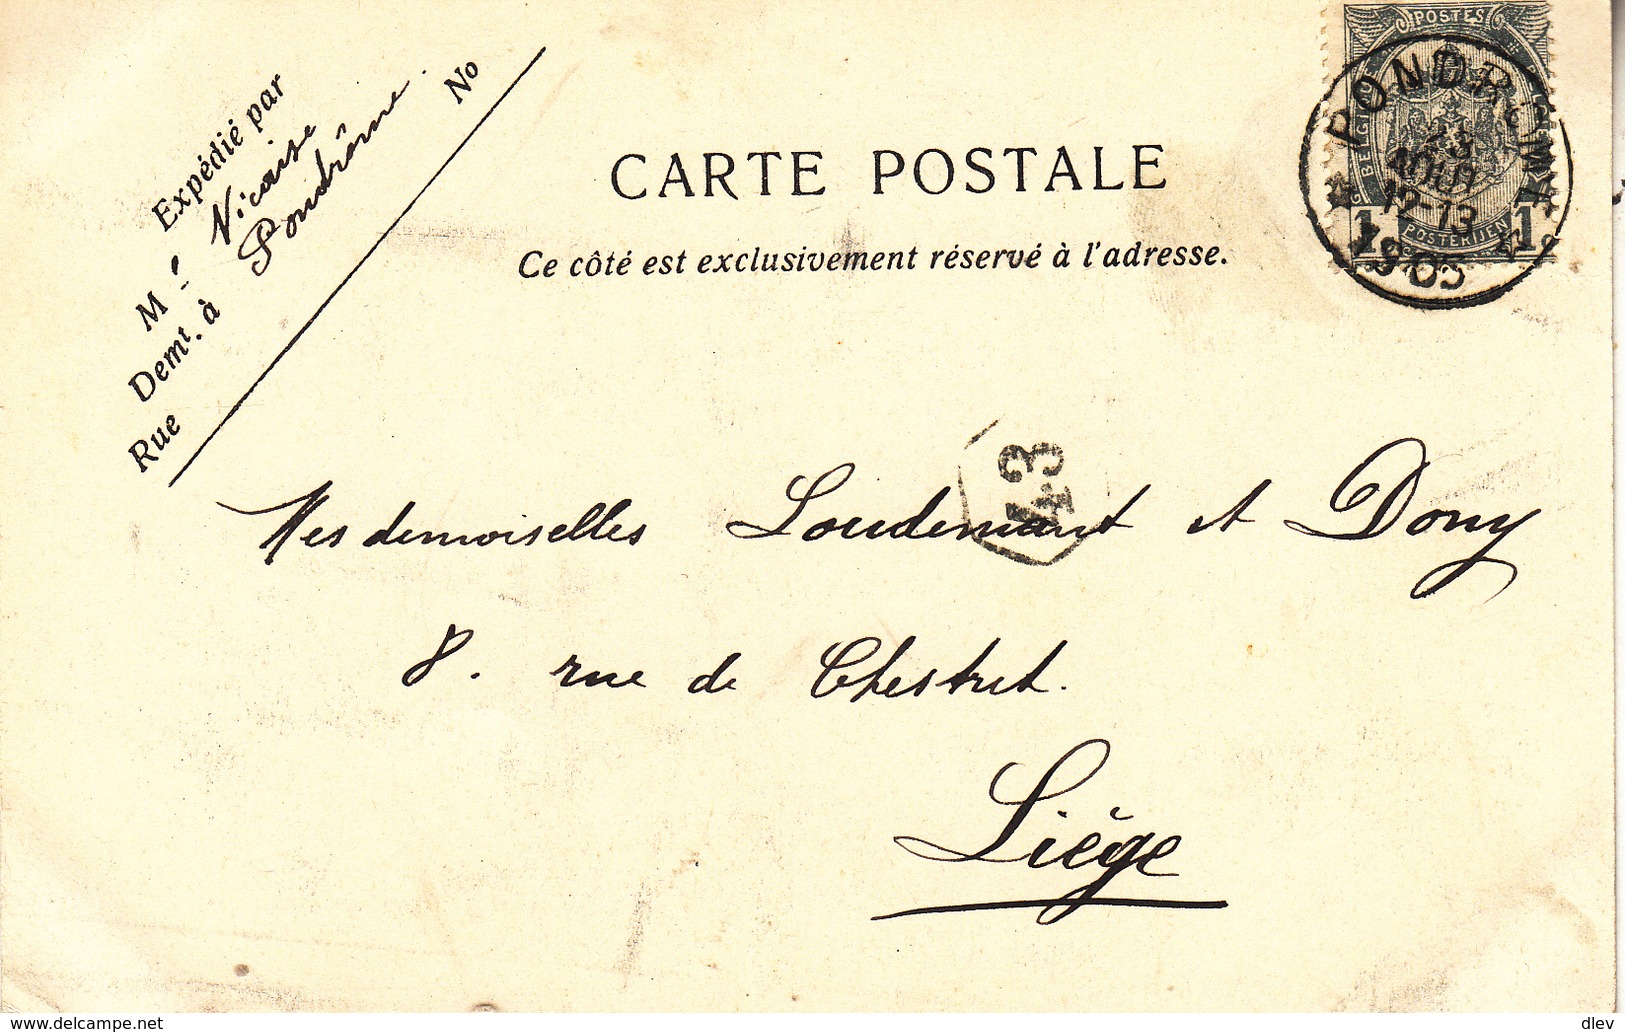 Expédié par
M Nicaise
Demt. à Pondrôme
Rue No
CARTE POSTALE
Ce côté est exclusivement réservé à l'adresse.
POSTES
POSTERIJEN
1 1
PONDROME
AOUT
12-13
1905
43
Mesdemoiselles Loudemant et Dony
8. rue de Chestret.
Liège
www.delcampe.net
dlev